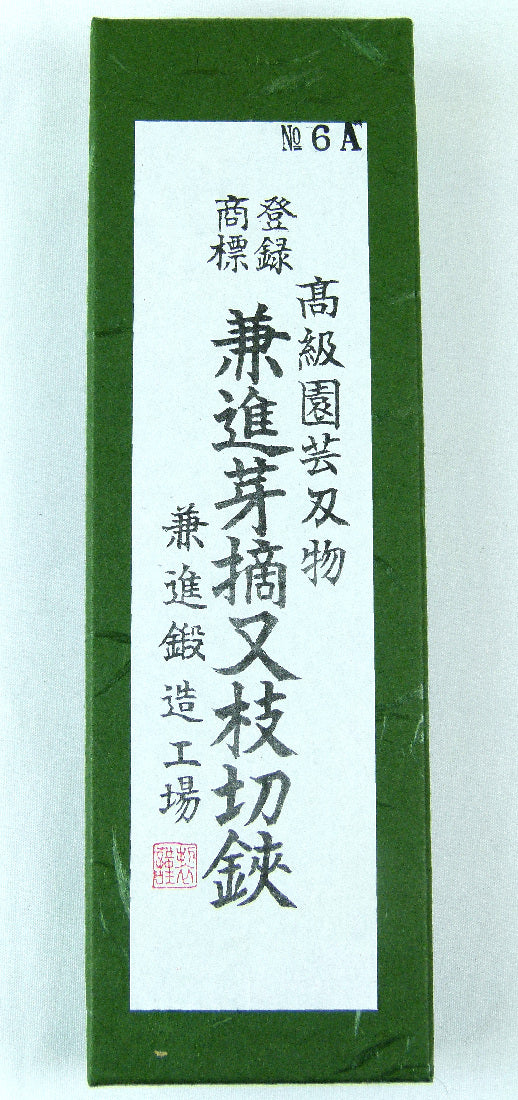 № 6 A
髙級園芸刃物
登録
商標
兼進芽摘又枝切鋏
兼進鍛造工場